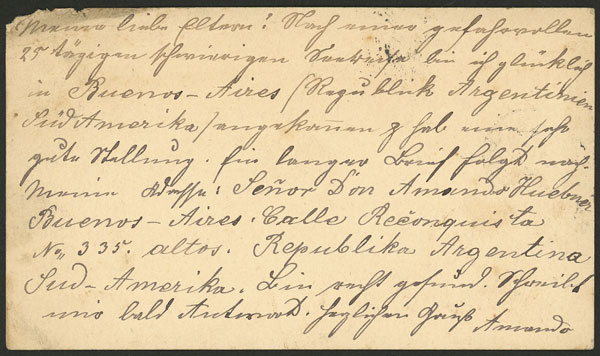 Meine liebe Eltern! Nach einer gefahrvollen
25 tägigen schwierigen Seereise bin ich glücklich
in Buenos-Aires (Republik Argentinien
Süd Amerika) angekommen & hab eine sehr
gute Stellung. Ein langer Brief folgt nach.
Meine Adresse: Señor Don Amando Huebner
Buenos-Aires. Calle Reconquista
No 335. altos. Republika Argentina
Sud-Amerika. Bin recht gesund. Schreibt
mir bald Antwort. herzlichen Gruß Amando